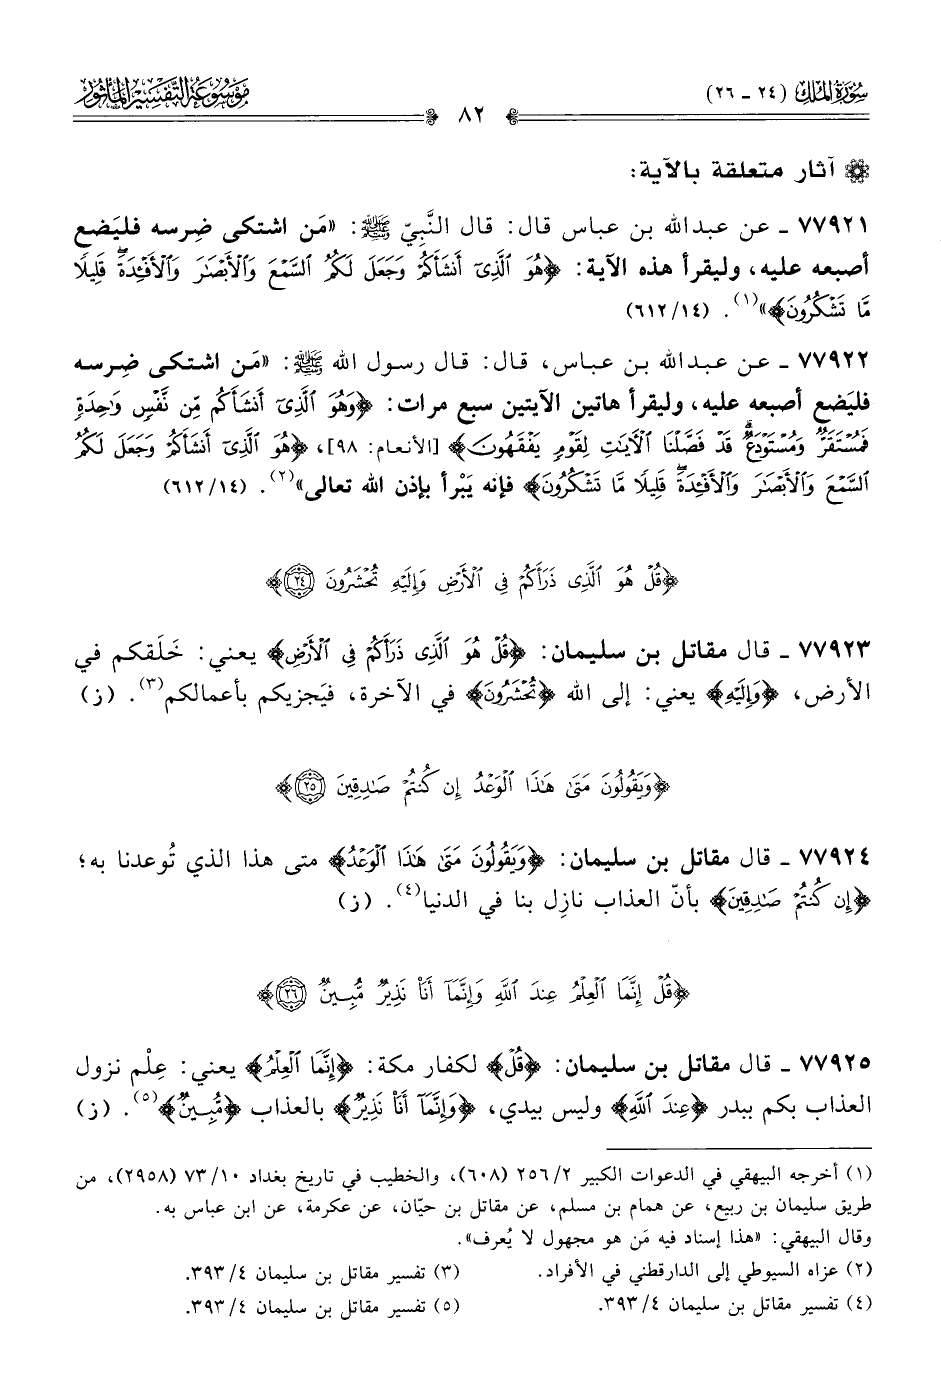 سُورَةُ المُلْكِ (٢٤ - ٢٦)
٨٢
مَوْسُوعَةُ التَّفْسِيرِ المَأْثُورِ
آثار متعلقة بالآية:
٧٧٩٢١ - عن عبدالله بن عباس قال: قال النَّبِيّ ﷺ: «مَن اشتكى ضِرسه فليَضع
أصبعه عليه، وليقرأ هذه الآية: ﴿هُوَ ٱلَّذِىٓ أَنشَأَكُمْ وَجَعَلَ لَكُمُ ٱلسَّمْعَ وَٱلْأَبْصَٰرَ وَٱلْأَفْـِٔدَةَۖ قَلِيلًا
مَّا تَشْكُرُونَ﴾»(١). (٦١٢/١٤)
٧٧٩٢٢ - عن عبدالله بن عباس، قال: قال رسول الله ﷺ: «مَن اشتكى ضِرسه
فليَضع أصبعه عليه، وليقرأ هاتين الآيتين سبع مرات: ﴿وَهُوَ ٱلَّذِىٓ أَنشَأَكُم مِّن نَّفْسٍ وَٰحِدَةٍ
فَمُسْتَقَرٌّ وَمُسْتَوْدَعٌۗ قَدْ فَصَّلْنَا ٱلْأٓيَٰتِ لِقَوْمٍ يَفْقَهُونَ﴾ [الأنعام: ٩٨]، ﴿هُوَ ٱلَّذِىٓ أَنشَأَكُمْ وَجَعَلَ لَكُمُ
ٱلسَّمْعَ وَٱلْأَبْصَٰرَ وَٱلْأَفْـِٔدَةَۖ قَلِيلًا مَّا تَشْكُرُونَ﴾ فإنه يَبْرأ بإذن الله تعالى»(٢). (٦١٢/١٤)
﴿قُلْ هُوَ ٱلَّذِى ذَرَأَكُمْ فِى ٱلْأَرْضِ وَإِلَيْهِ تُحْشَرُونَ ٢٤﴾
٧٧٩٢٣ - قال مقاتل بن سليمان: ﴿قُلْ هُوَ ٱلَّذِى ذَرَأَكُمْ فِى ٱلْأَرْضِ﴾ يعني: خَلَقكم في
الأرض، ﴿وَإِلَيْهِ﴾ يعني: إلى الله ﴿تُحْشَرُونَ﴾ في الآخرة، فيَجزيكم بأعمالكم(٣). (ز)
﴿وَيَقُولُونَ مَتَىٰ هَٰذَا ٱلْوَعْدُ إِن كُنتُمْ صَٰدِقِينَ ٢٥﴾
٧٧٩٢٤ - قال مقاتل بن سليمان: ﴿وَيَقُولُونَ مَتَىٰ هَٰذَا ٱلْوَعْدُ﴾ متى هذا الذي تُوعدنا به؛
﴿إِن كُنتُمْ صَٰدِقِينَ﴾ بأنّ العذاب نازِل بنا في الدنيا(٤). (ز)
﴿قُلْ إِنَّمَا ٱلْعِلْمُ عِندَ ٱللَّهِ وَإِنَّمَآ أَنَا۠ نَذِيرٌ مُّبِينٌ ٢٦﴾
٧٧٩٢٥ - قال مقاتل بن سليمان: ﴿قُلْ﴾ لكفار مكة: ﴿إِنَّمَا ٱلْعِلْمُ﴾ يعني: عِلْم نزول
العذاب بكم ببدر ﴿عِندَ ٱللَّهِ﴾ وليس بيدي، ﴿وَإِنَّمَآ أَنَا۠ نَذِيرٌ﴾ بالعذاب ﴿مُّبِينٌ﴾(٥). (ز)
(١) أخرجه البيهقي في الدعوات الكبير ٢/ ٢٥٦ (٦٠٨)، والخطيب في تاريخ بغداد ١٠/ ٧٣ (٢٩٥٨)، من
طريق سليمان بن ربيع، عن همام بن مسلم، عن مقاتل بن حيّان، عن عكرمة، عن ابن عباس به.
وقال البيهقي: «هذا إسناد فيه مَن هو مجهول لا يُعرف».
(٢) عزاه السيوطي إلى الدارقطني في الأفراد. (٣) تفسير مقاتل بن سليمان ٤/ ٣٩٣.
(٤) تفسير مقاتل بن سليمان ٤/ ٣٩٣. (٥) تفسير مقاتل بن سليمان ٤/ ٣٩٣.